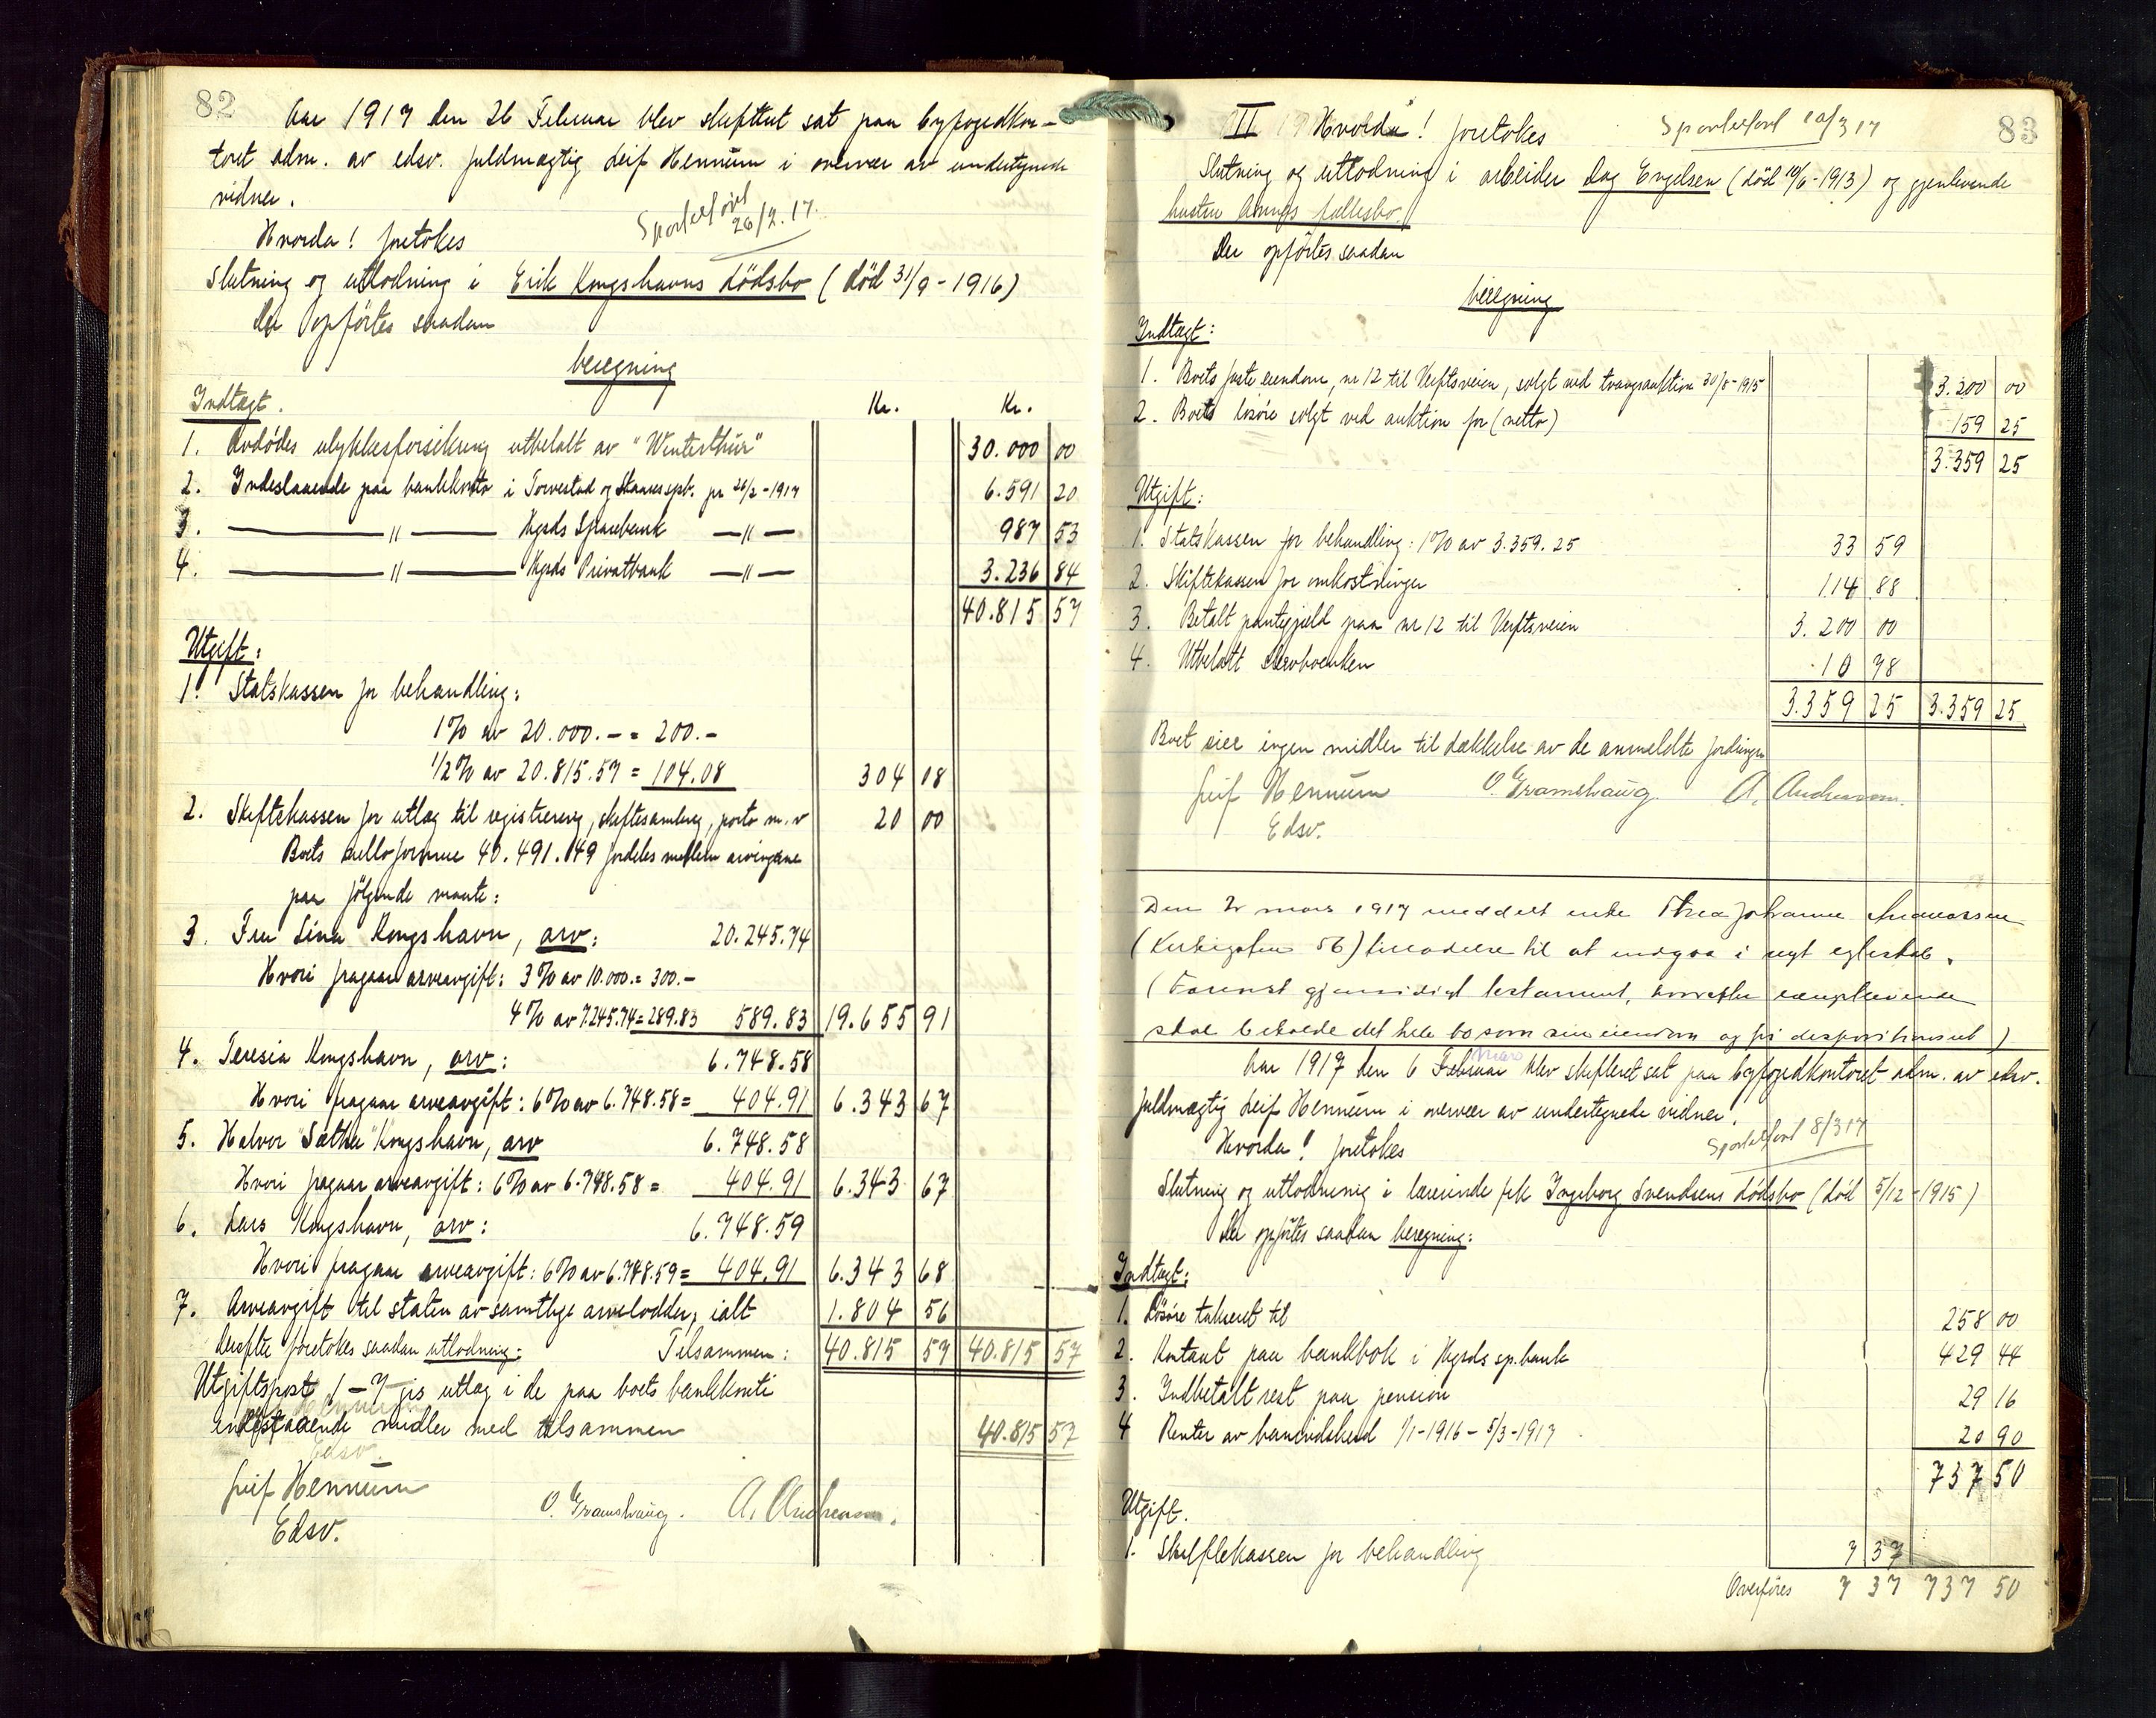 82
Aar 1917 den 26 Februar blev skifteret sat paa byfogedkon-
toret adm. av edsv. fuldmægtig Leif Hennum i overvær av undertegnede
vidner.
Sportelført 26/2. 17.
Hvorda! foretokes
Slutning og utlodning i Erik Kongshavns dödsbo (död 31/9 - 1916)
Der opförtes saadan
beregning
Indtægt.
Kr. Kr.
1. Avdödes ulykkesforsikring utbetalt av "Winterthür" 30.000 00
2. Indestaaende paa bankkonto i Torvestad og Skaares spb. pr 26/2 - 1917 6.591 20
3. — " — Hgsds Sparebank — " — 987 53
4. — " — Hgsds Privatbank — " — 3.236 84
40.815 57
Utgift:
1. Statskassen for behandling:
1% av 20.000.- = 200.-
1/2% av 20.815.57 = 104.08 304 08
2. Skiftekassen for utlæg til registrering, skiftesamling, porto m.v 20 00
Boets nettoformue 40.491.49 fordeles mellem arvingene
paa följende maate:
3. Fru Lina Kongshavn, arv: 20.245.74
Hvori fragaar arveavgift: 3% av 10.000.= 300.-
4% av 7.245.74=289.83 589.83 19.655 91
4. Teresia Kongshavn, arv: 6.748.58
Hvori fragaar arveavgift: 6% av 6.748.58= 404.91 6.343 67
5. Halvor "Sæthe" Kongshavn, arv 6.748.58
Hvori fragaar arveavgift: 6% av 6.748.58 = 404.91 6.343 67
6. Lars Kongshavn, arv: 6.748.59
Hvori fragaar arveavgift: 6% av 6.748.59= 404.91 6.343 68
7. Arveavgift til staten av samtlige arvelodder, ialt 1.804 56
Derefter foretokes saadan utlodning: Tilsammen: 40.815 57 40.815 57
Utgiftspost 1-7 gis utlæg i de paa boets bankkonti
indestaaende midler med tilsammen 40.815 57
Leif Hennum
Edsv.
O. Gramshaug. A. Andreassen.
83
II Hvorda! foretokes
Sportelført 10/3 17
Slutning og utlodning i arbeider Dag Engelsen (död 10/6 - 1913) og gjenlevende
hustru Annas fællesbo.
Der opförtes saadan
beregning
Indtægt:
1. Boets faste eiendom, nr 12 til Verftsveien, solgt ved tvangsauktion 30/8 - 1915 3.200 00
2. Boets lösöre solgt ved auktion for (netto) 159 25
3.359 25
Utgift:
1. Statskassen for behandling: 1% av 3.359.25 33 59
2. Skiftekassen for omkostninger 114 88
3. Betalt pantegjeld paa nr 12 til Verftsveien 3.200 00
4. Utbetalt 10 78
3.359 25 3.359 25
Boet eier ingen midler til dækkelse av de anmeldte fordringer
Leif Hennum
Edsv.
O. Gramshaug. A. Andreassen.
Den 2 mars 1917 meddelt enke Thea Johanne Andreassen
(Kirkegaten 56) tilladelse til at indgaa i nygt egteskab.
(Forevist gjensidigt testament, hvorefter længstlevende
skal beholde det hele bo som sin eiendom og fri )
Aar 1917 den 6 Februar mars blev skifteret sat paa byfogedkontoret adm. av edsv.
fuldmægtig Leif Hennum i overvær av undertegnede vidner.
Hvorda! foretokes
Sportelført 8/3 17
Slutning og utlodning i lærerinde frk Ingeborg Svendsens dödsbo (död 5/12 - 1915)
Der opförtes saadan beregning:
Indtægt:
1. Lösöre taksert til 258 00
2. Kontant paa bankbok i Hgsds sp.bank 429 44
3. Indbetalt rest paa pension 29 16
4 Renter av bankindskud 1/1-1916 - 5/3-1917 20 90
737 50
Utgift.
1. Skiftekassen for behandling 7 37
Overföres 7 37 737 50